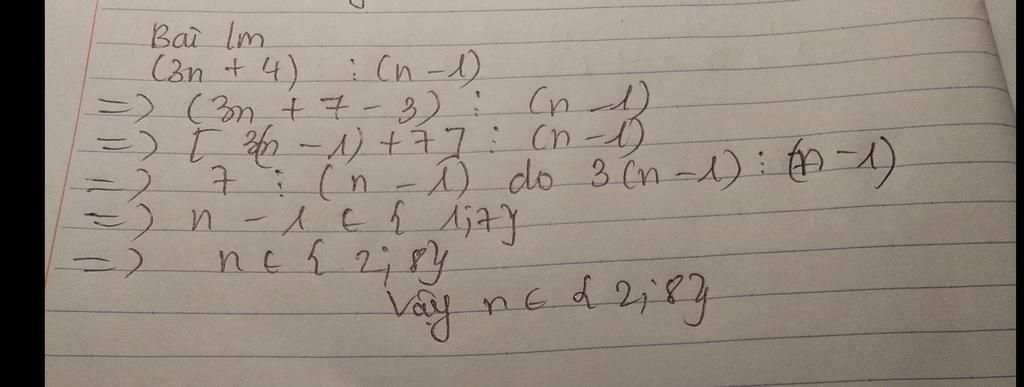 Bài lm
(3n + 4) ⋮ (n - 1)
=> (3n + 7 - 3) ⋮ (n - 1)
=> [ 3(n - 1) + 7 ] ⋮ (n - 1)
=> 7 ⋮ (n - 1) do 3(n - 1) ⋮ (n - 1)
=> n - 1 ∈ { 1; 7}
=> n ∈ { 2; 8}
Vậy n ∈ { 2; 8}